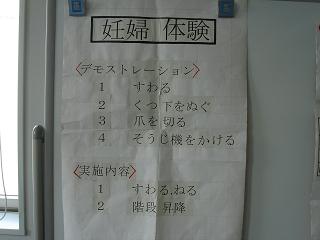 妊婦 体験
〈デモストレーション〉
1 すわる
2 くつ下をぬぐ
3 爪を切る
4 そうじ機をかける
〈実施内容〉
1 すわる,ねる
2 階段 昇降